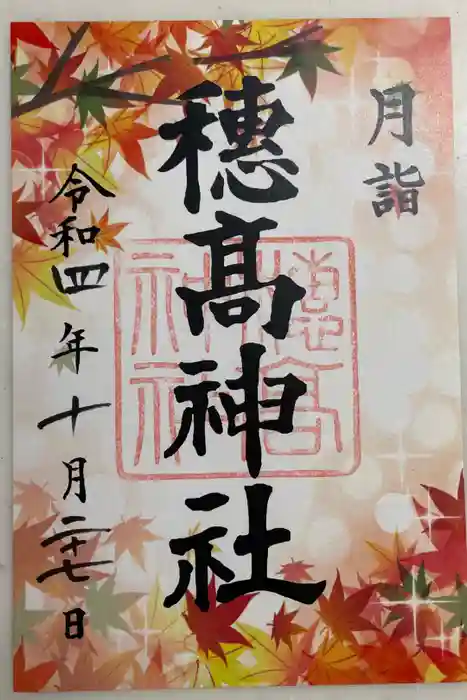 月詣
穂髙神社
令和四年十月二十七日
穂高
神社